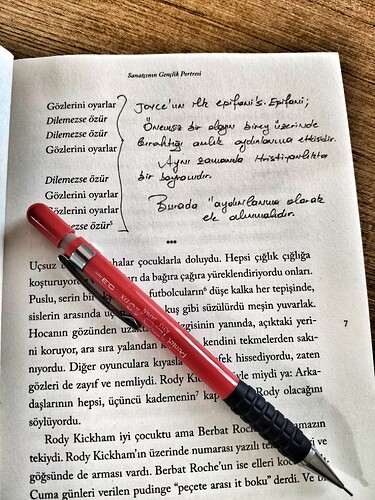 Sanatçının Gençlik Portresi
Gözlerini oyarlar
Dilemezse özür
Dilemezse özür
Gözlerini oyarlar
Dilemezse özür
Gözlerini oyarlar
Gözlerini oyarlar
emezse özür⁵
Joyce'un ilk epifani'si. Epifani;
Önemsiz bir olayın birey üzerinde
bıraktığı anlık aydınlanma etkisidir.
Aynı zamanda Hristiyanlıkta
bir bayramdır.
Burada "aydınlanma olarak
ele alınmalıdır.
***
Uçsuz halar çocuklarla doluydu. Hepsi çığlık çığlığa
koşturuyor da bağıra çağıra yüreklendiriyordu onları.
Puslu, serin bir futbolcuların⁶ düşe kalka her tepişinde,
sislerin arasında kuş gibi süzülürdü meşin yuvarlak.
Hocanın gözünden uzakt zgisinin yanında, açıktaki yeri-
ni koruyor, ara sıra yalandan kendini tekmelerden sakı-
nıyordu. Diğer oyunculara kıyasla fek hissediyordu, zaten
gözleri de zayıf ve nemliydi. Rody yle miydi ya: Arka-
daşlarının hepsi, üçüncü kademenin⁷ kap Rody olacağını
söylüyordu.
7
Rody Kickham iyi çocuktu ama Berbat Roch amazın
tekiydi. Rody Kickham'ın üzerinde numarası yazılı ti ve
göğsünde de arması vardı. Berbat Roche'un ise elleri koc
Cuma günleri verilen pudinge "peçete arası it boku" derdi. Ve b